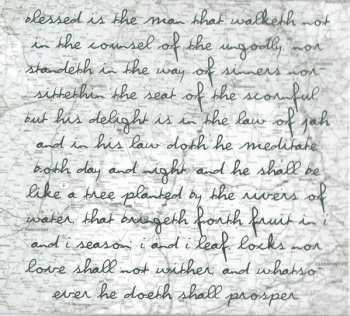 blessed is the man that walketh not
in the counsel of the ungodly nor
standeth in the way of sinners nor
sitteth in the seat of the scornful
but his delight is in the law of jah
and in his law doth he meditate
both day and night and he shall be
like a tree planted by the rivers of
water that bringeth forth fruit in i
and i season i and i leaf locks nor
love shall not wither and whatso
ever he doeth shall prosper